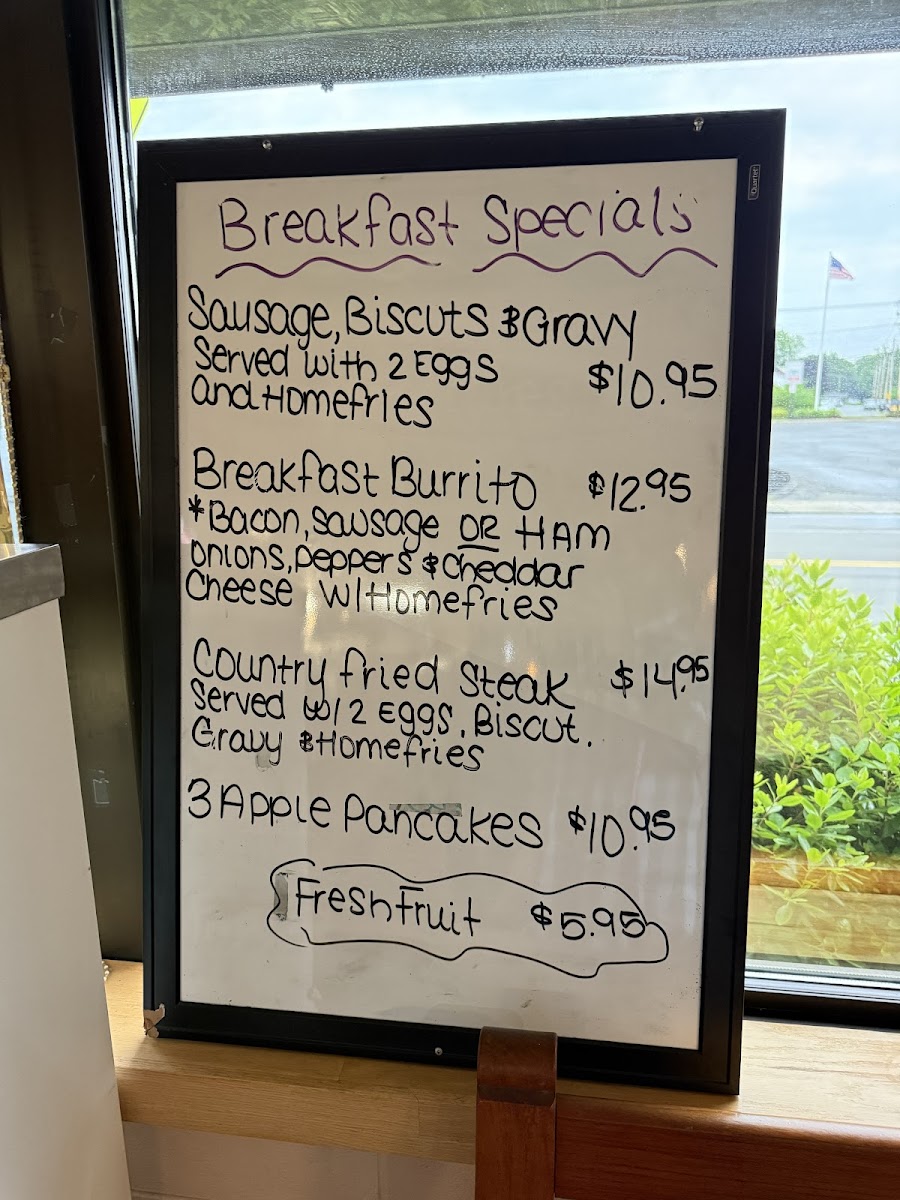 Breakfast Specials
Quartet
Sausage, Biscuts & Gravy
Served with 2 Eggs
and Homefries
$10.95
Breakfast Burrito $12.95
*Bacon, sausage OR HAM
onions, peppers & cheddar
Cheese W/Homefries
Country fried steak $14.95
Served w/ 2 Eggs, Biscut.
Gravy & Homefries
3 Apple Pancakes $10.95
Fresh Fruit $5.95